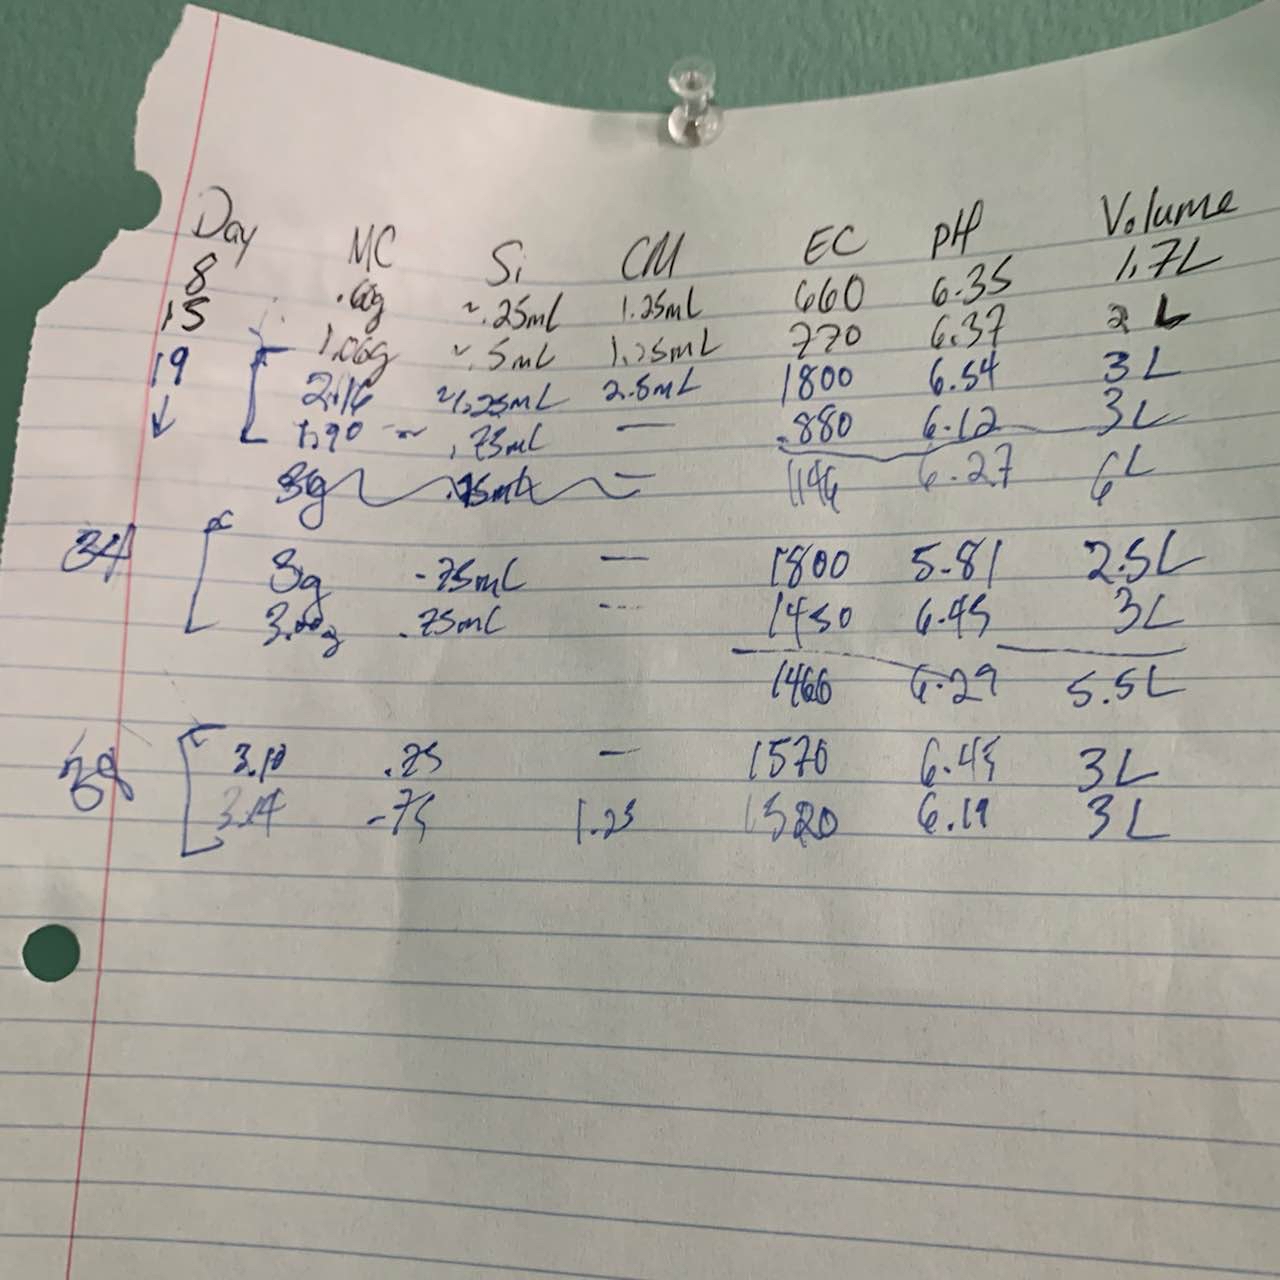 Day MC Si CM EC pH Volume
8 .60g ~.25mL 1.25mL 660 6.35 1.7L
15 1.06g ~.5mL 1.25mL 770 6.37 2 L
19 2.16 ~1.25mL 2.5mL 1800 6.54 3L
↓ 1.90 ~ .75mL — .880 6.12 3L
3g .75mL — 1146 6.27 6L
34 3g .75mL — 1800 5.81 2.5L
.75mL --- 1450 6.45 3L
1466 6.29 5.5L
38 3.10 .25 — 1570 6.45 3L
3.14 .75 1.25 1520 6.19 3L